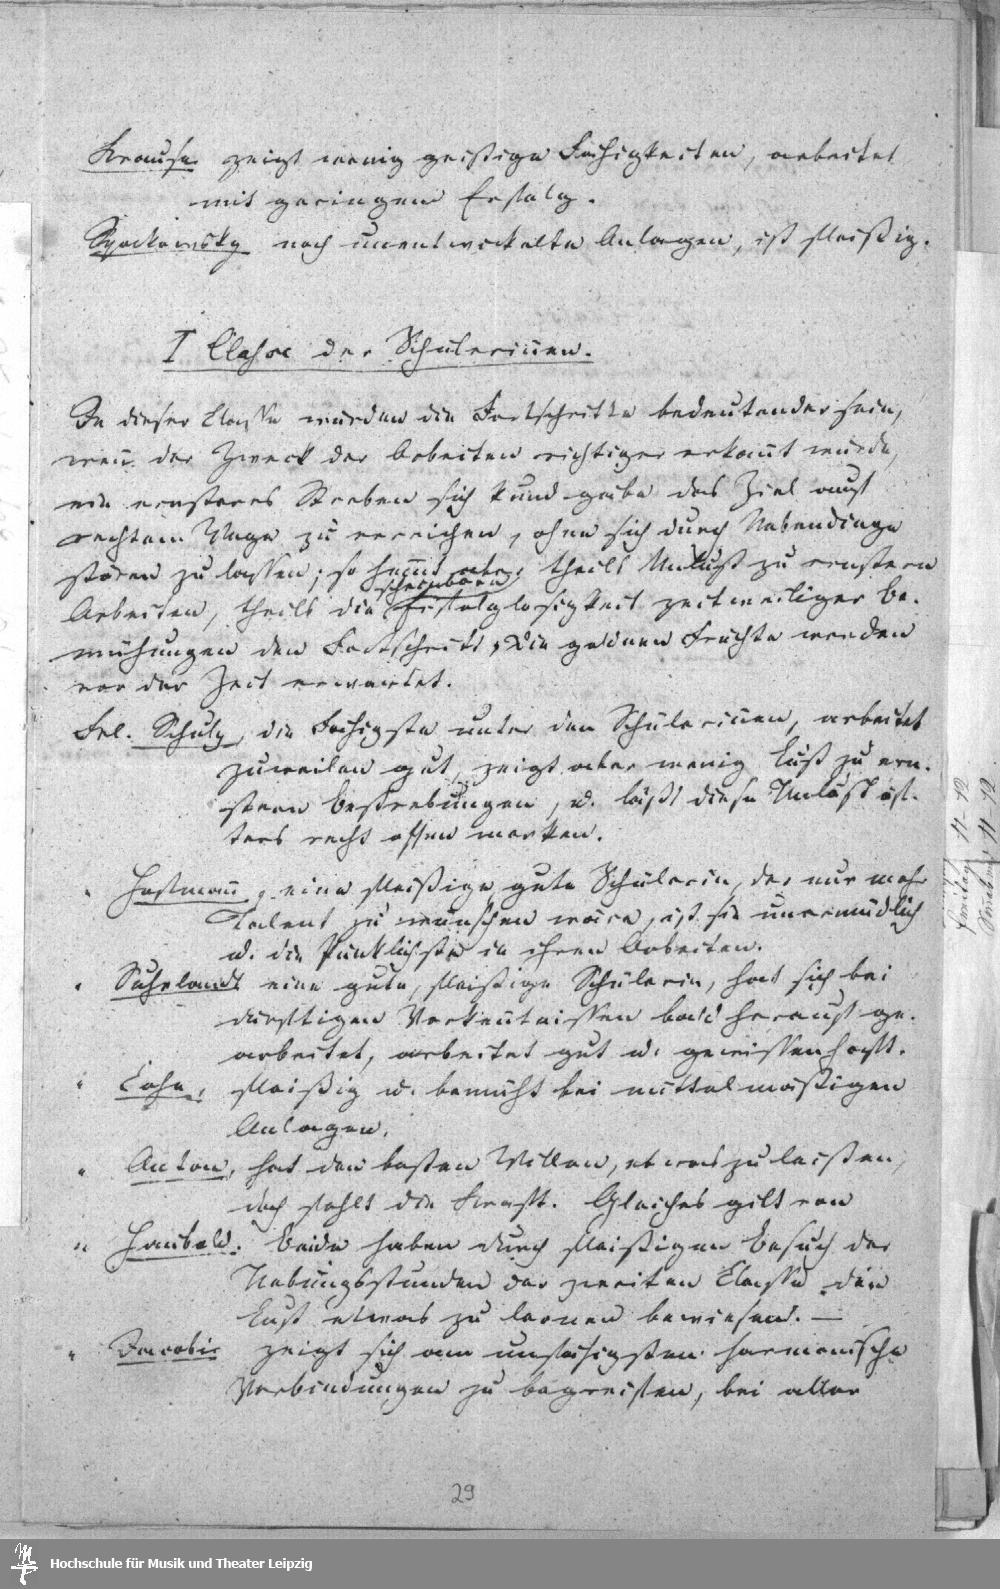 Krause zeigt wenig geistige Fähigkeiten, arbeitet
mit geringem Erfolg.
noch unentwickelte Anlagen, ist fleißig.
I Classe der Schülerinen.
In dieser Classe würden die Fortschritte bedeutender sein,
wen der Zweck der Arbeiten richtiger erkant würde,
ein ernsteres Streben sich kund gäbe das Ziel auf
rechtem Wege zu erreichen, ohne sich durch Nebendinge
stören zu lassen; so hemt aber theils Unlust zu ernsten
scheinbare
Arbeiten, theils die Erfolglosigkeit zeitweiliger Be-
mühungen den Fortschritt, die goldnen Früchte werden
vor der Zeit erwartet.
Frl. Schulz, die Fähigste unter den Schülerinen, arbeitet
zuweilen gut, zeigt aber wenig Lust zu ern-
steren Bestrebungen, u. läßt diese Unlust öf-
ters recht offen merken.
" Hastman, eine fleißige gute Schülerin, der nur mehr
Talent zu wünschen wäre, ist sie unermüdlich
u. die Pünktlichste in ihren Arbeiten.
" Suhrlandt eine gute, fleißige Schülerin, hat sich bei
dürftigen Vorkentnissen bald herauf ge-
arbeitet, arbeitet gut u. gewissenhaft.
" fleißig u. bemüht bei mittelmäßigen
Anlagen.
" Anton, hat den besten Willen, etwas zu leisten,
doch fehlt die Kraft. Gleiches gilt von
" Haubold. Beide haben durch fleißigen Besuch der
Uebungsstunden der zweiten Classe die
Lust etwas zu lernen bewiesen. —
" Jacobi zeigt sich am unfähigsten harmonische
Verbindungen zu begreifen, bei aller
29
11-12
11-12
Hochschule für Musik und Theater Leipzig